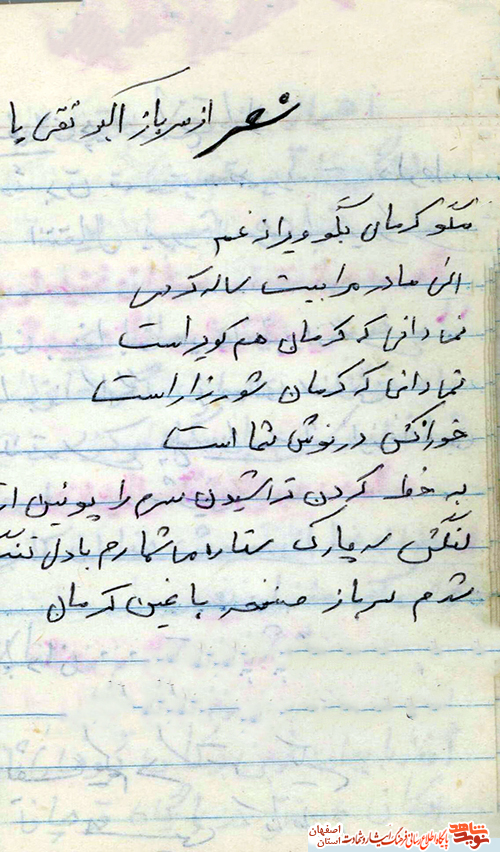 شعر از سرباز اکبر تقی پا
مگو کرمان بگو ویرانه غم
الی مادر مرا بیست ساله کردی
نمیدانی که کرمان هم کویر است
نمیدانی که کرمان شوره زار است
خوراکش در نوش شما است
به خط کردن تراشیدن سرم را پوتین
لنگش سه پارک ستاره ها شمارم با دل تنگ
شدم سرباز صفر باغین کرمان
نوید شاهد
پایگاه اطلاع رسانی فرهنگ ایثار و شهادت
استان اصفهان